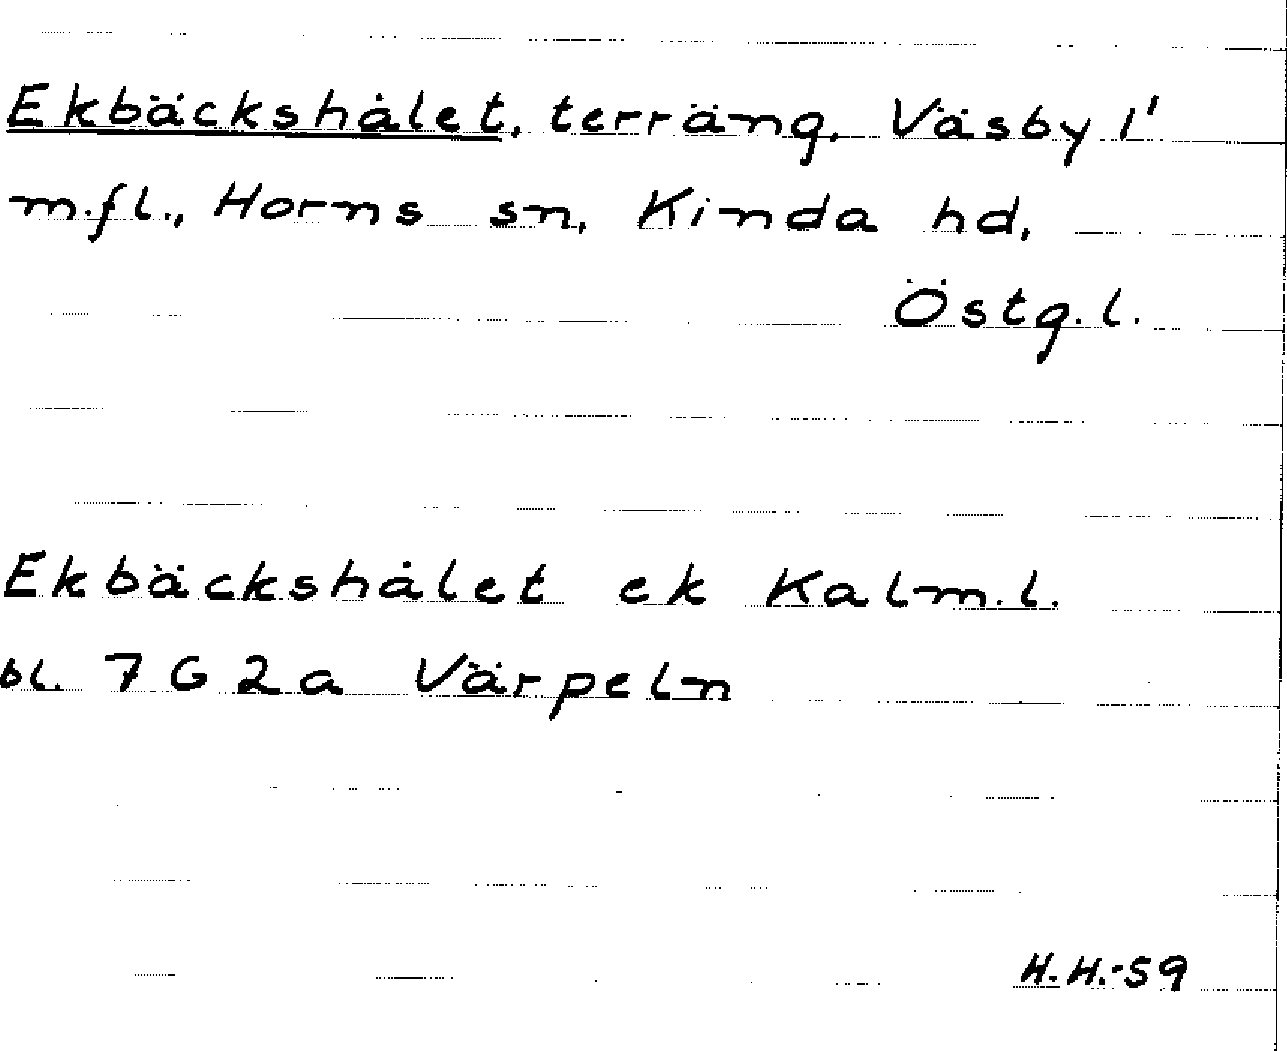 Ekbäckshålet, terräng, Väsby 1'
m.fl., Horns sn, Kinda hd,
Östg.l.
Ekbäckshålet ek Kalm.l.
bl. 7 G 2 a Värpeln
H.H.-59